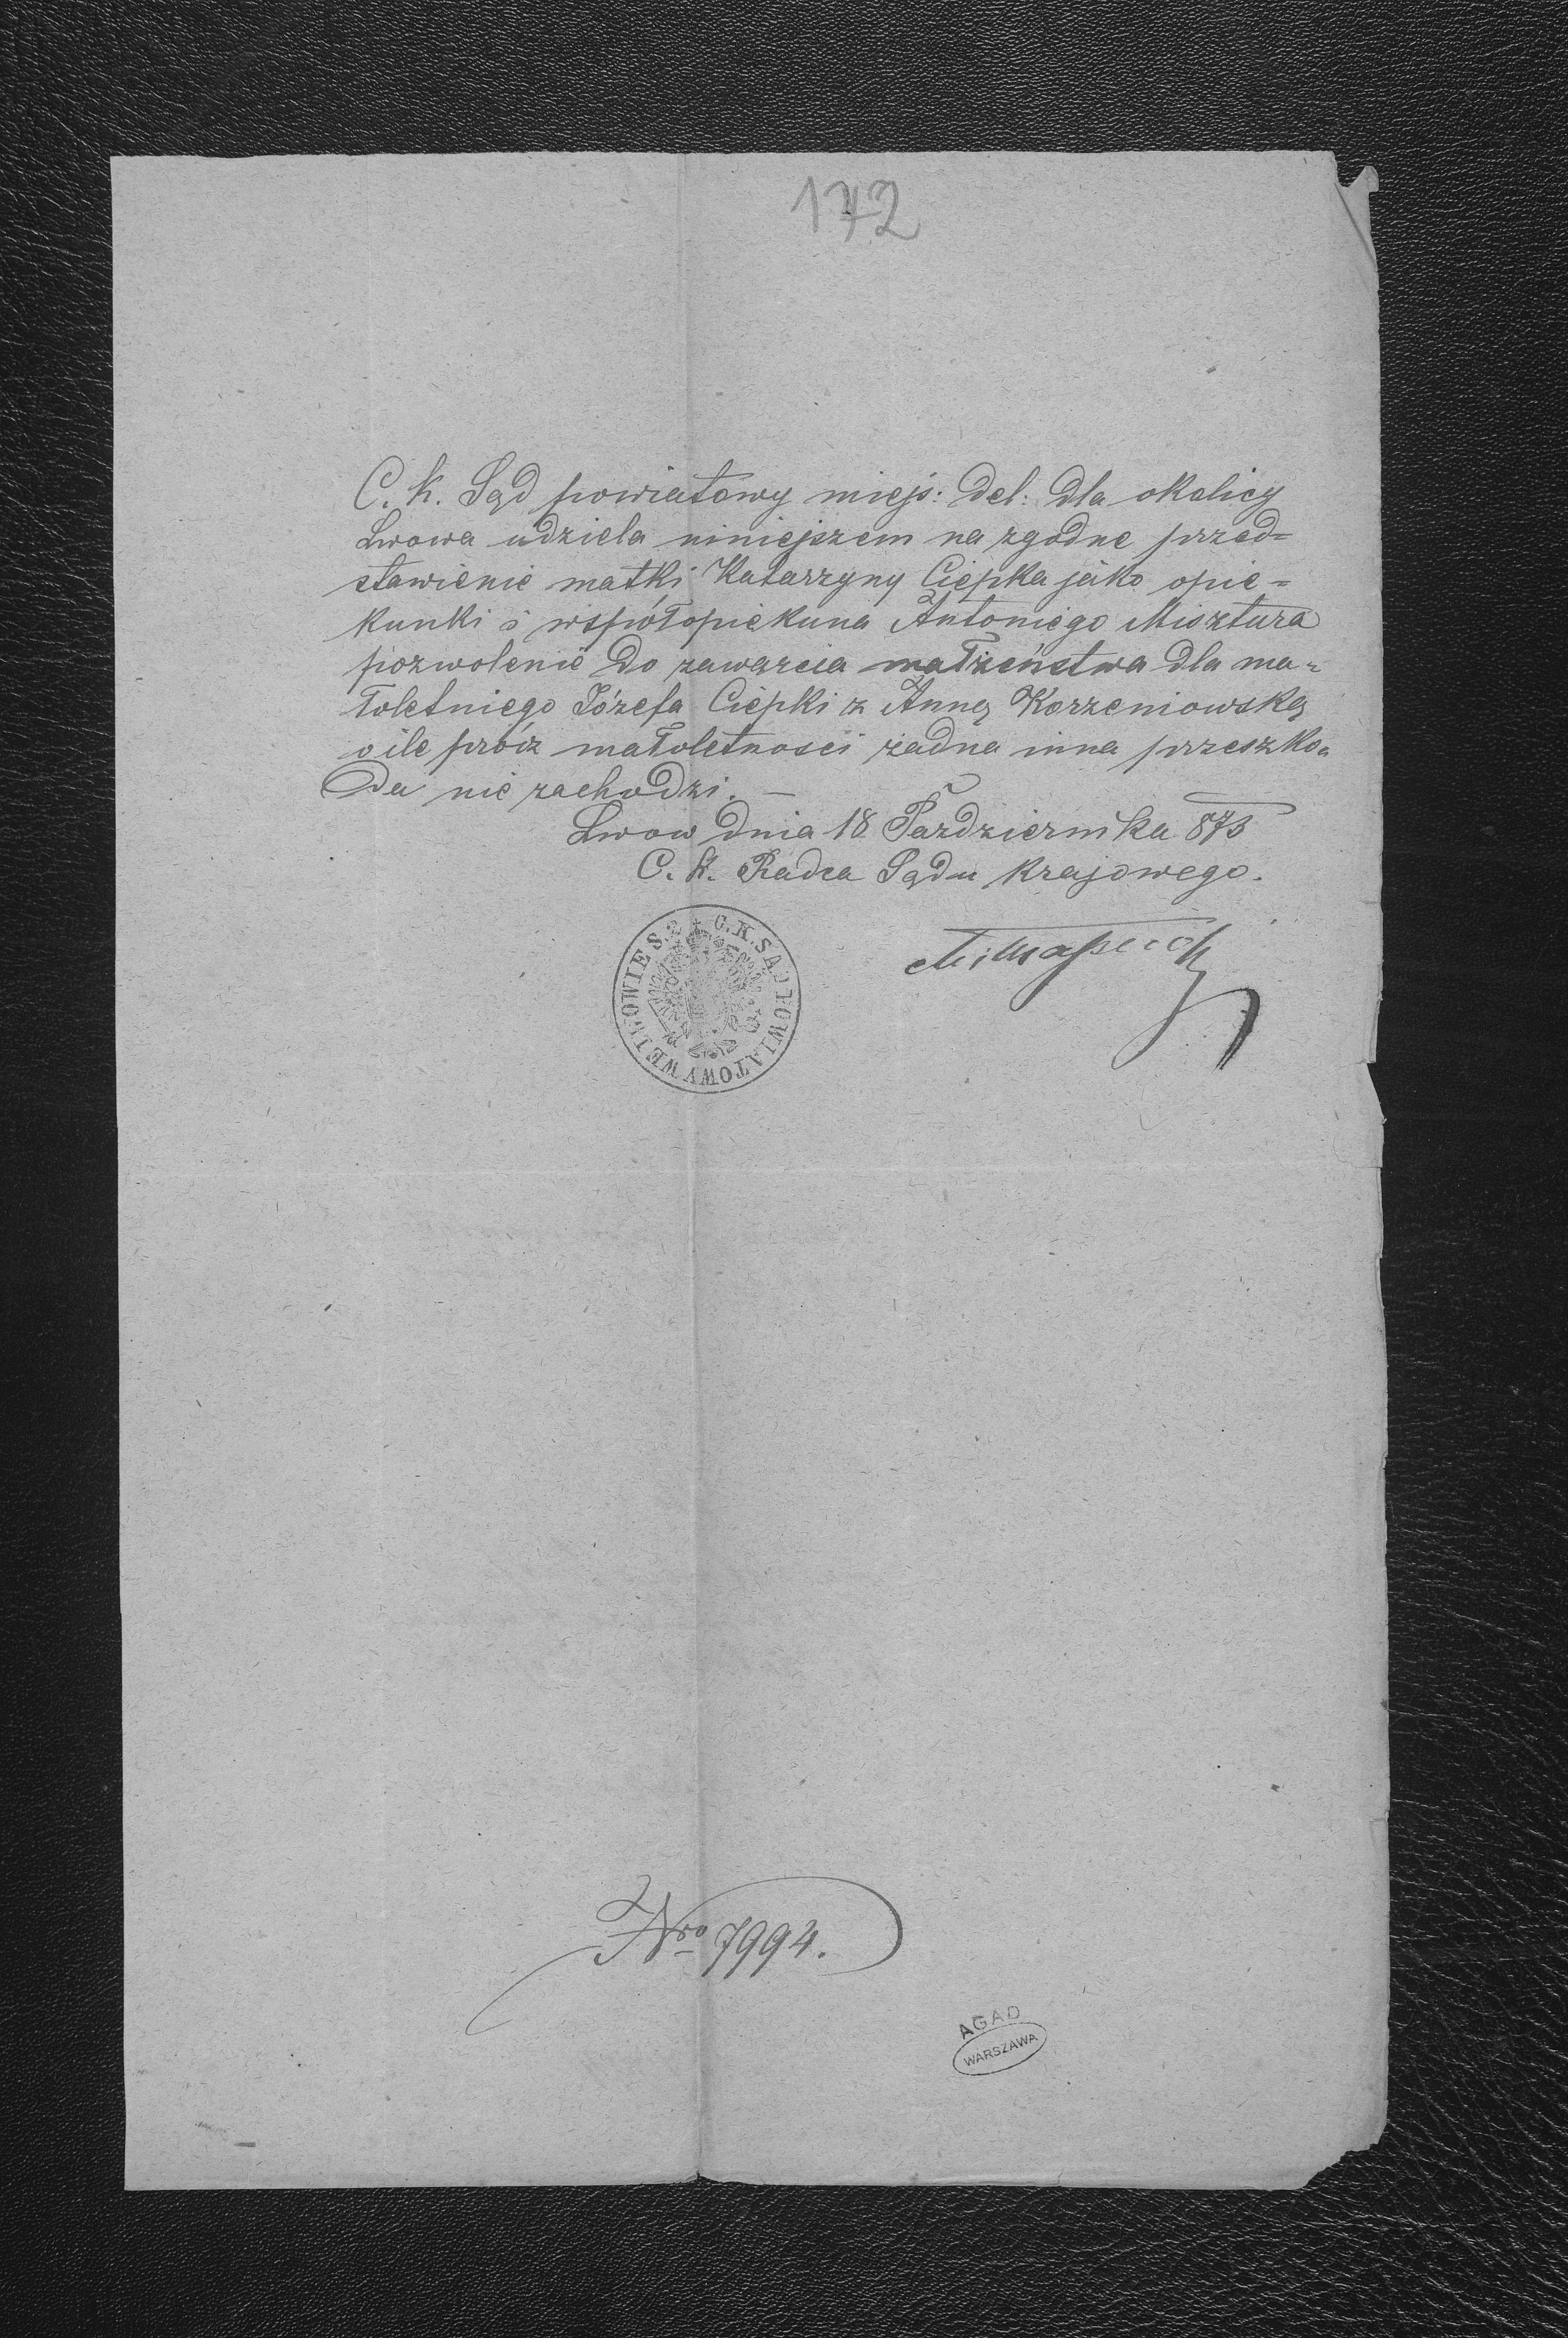 172
C. k. Sąd powiatowy miejs: del: dla okolicy
Lwowa udziela niniejszem na zgodne przed=
stawienie matki Katarzyny Ciepka jako opie=
kunki i współopiekuna Antoniego Misztura
pozwolenie do zawarcia małżeństwa dla ma=
łoletniego Józefa Ciepki z Anną Korzeniowską
o ile próz małoletności żadna inna przeszko=
da nie zachodzi. —
Lwow dnia 18 Października 873
C. k. Radca Sądu krajowego.
C. K. SĄD POWIATOWY WE LWOWIE S. 2
Nro 7994.
AGAD
WARSZAWA